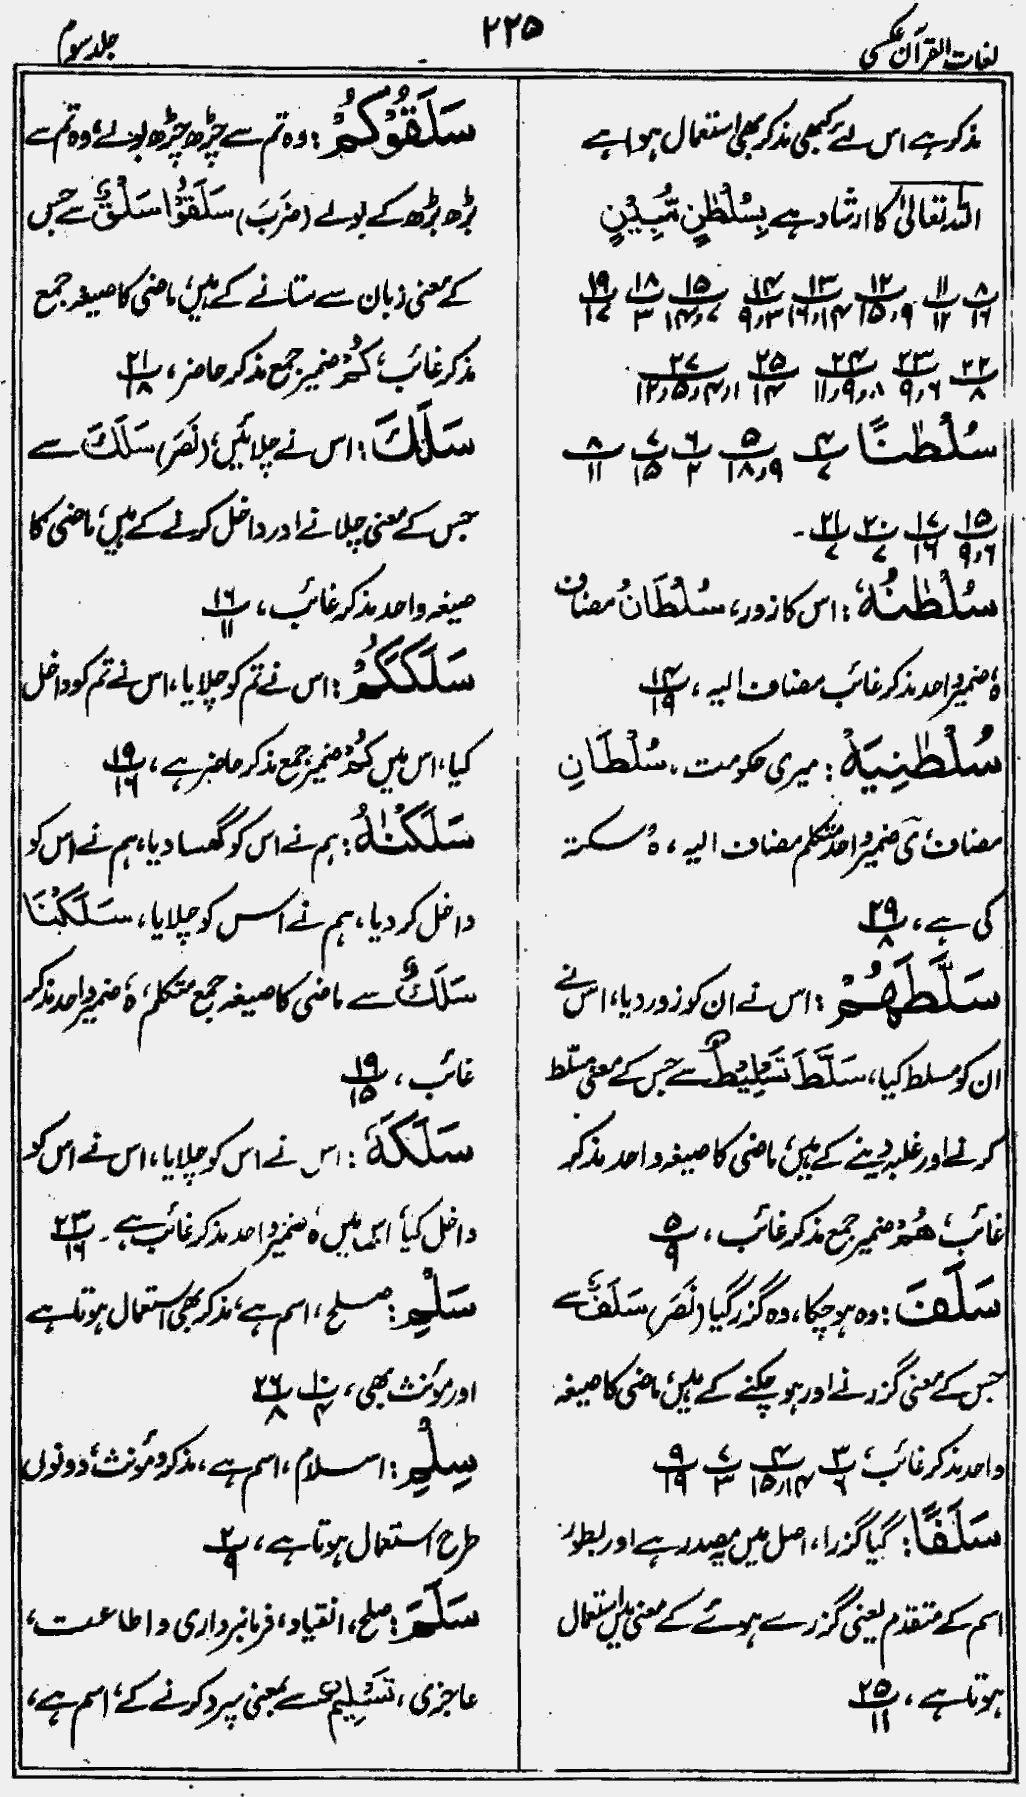 لغات القرآن عکسی
۲۲۵
جلد سوم
مذکر ہے اس لئے کبھی مذکر بھی استعمال ہوا ہے
اللہ تعالیٰ کا ارشاد ہے بِسُلْطٰنٍ مُّبِیْنٍ
۸/۱۶ ۱۱/۱۲ ۱۲/۹،۱۵ ۱۳/۱۴،۱۶ ۱۴/۳،۹ ۱۵/۷،۱۴ ۱۸/۳ ۱۹/۱۷
۲۲/۸ ۲۳/۶،۹ ۲۴/۸،۹،۱۱ ۲۵/۱۴ ۲۷/۱،۴،۵،۱۲
سُلْطٰنًا ۴/۷ ۵/۹،۱۸ ۶/۲ ۷/۱۵ ۸/۱۱
۱۵/۶،۹ ۱۷/۱۶ ۲۰/۷ ۲۱/۷ ۔
سُلْطٰنُہٗ : اس کا زور، سُلْطَانُ مضاف
ہٗ ضمیر واحد مذکر غائب مضاف الیہ، ۱۴/۱۹
سُلْطٰنِیَہْ : میری حکومت، سُلْطَانِ
مضاف، یَ ضمیر واحد متکلم مضاف الیہ، ہْ سکتہ
کی ہے، ۲۹/۸
سَلَّطَہُمْ : اس نے ان کو زور دیا، اس نے
ان کو مسلط کیا، سَلَّطَ تَسْلِیْطٌ سے جس کے معنی مسلّط
کرنے اور غلبہ دینے کے ہیں، ماضی کا صیغہ واحد مذکر
غائب، ہُمْ ضمیر جمع مذکر غائب، ۵/۹
سَلَفَ : وہ ہو چکا، وہ گزر گیا (نَصَرَ) سَلَفٌ سے
جس کے معنی گزرنے اور ہو چکنے کے ہیں، ماضی کا صیغہ
واحد مذکر غائب، ۳/۶ ۴/۱۴،۱۵ ۷/۳ ۹/۱۹
سَلَفًا : گیا گزرا، اصل میں مصدر ہے اور بطور
اسم کے متقدم یعنی گزرے ہوئے کے معنی میں استعمال
ہوتا ہے، ۲۵/۱۱
سَلَقُوْکُمْ : وہ تم سے چڑھ چڑھ بولے، وہ تم سے
بڑھ بڑھ کے بولے (ضَرَبَ) سَلَقُوْا سَلْقٌ سے جس
کے معنی زبان سے ستانے کے ہیں، ماضی کا صیغہ جمع
مذکر غائب، کُمْ ضمیر جمع مذکر حاضر، ۲۱/۱۸
سَلَکَ : اس نے چلائیں، (نَصَرَ) سَلَکَ سے
جس کے معنی چلانے اور داخل کرنے کے ہیں، ماضی کا
صیغہ واحد مذکر غائب، ۱۶/۱۱
سَلَکَکُمْ : اس نے تم کو چلایا، اس نے تم کو داخل
کیا، اس میں کُمْ ضمیر جمع مذکر حاضر ہے، ۱۹/۱۶
سَلَکْنٰہُ : ہم نے اس کو گھسا دیا، ہم نے اس کو
داخل کر دیا، ہم نے اس کو چلایا، سَلَکْنَا
سَلْکٌ سے ماضی کا صیغہ جمع متکلم، ہٗ ضمیر واحد مذکر
غائب، ۱۹/۱۵
سَلَکَہٗ : اس نے اس کو چلایا، اس نے اس کو
داخل کیا، اس میں ہٗ ضمیر واحد مذکر غائب ہے۔ ۲۳/۱۶
سَلْمٍ : صلح، اسم ہے، مذکر بھی استعمال ہوتا ہے
اور مؤنث بھی، ۱۰/۴ ۲۶/۸
سِلْمِ : اسلام، اسم ہے، مذکر و مؤنث، دونوں
طرح استعمال ہوتا ہے، ۲/۹
سَلَمَ : صلح، انقیاد، فرمانبرداری و اطاعت،
عاجزی، تَسْلِیْمٌ سے بمعنی سپرد کرنے کے، اسم ہے،